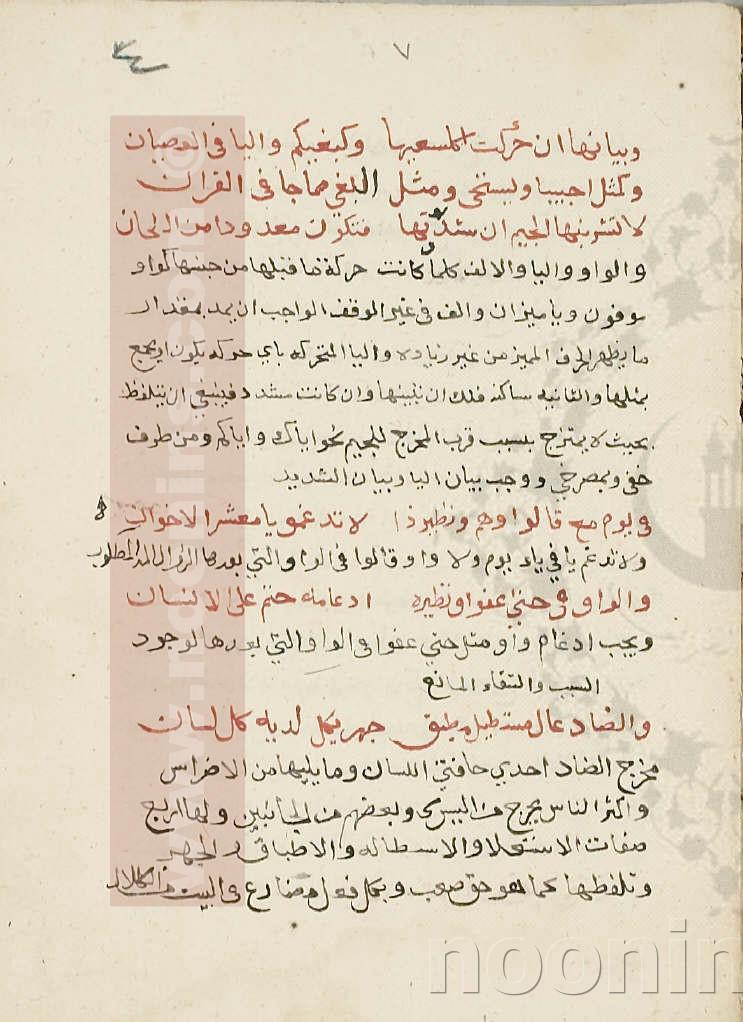 ٧
وبيانها ان حركت كلسعيها وكبغيكم واليا فى العصيان
وكمثل احيينا ويستحى ومثل البغي مما جا فى القران
لا تشربنها الجيم ان شدّدتها فتكون معدودا من اللحان
والواو واليا والالف كلما كانت حركة ما قبلها من جنسها كواو
موفون ويا ميزان والف فى غير الوقف الواجب ان يمد بمقدار
ما يظهر الحرف المميز من غير زياده واليا المتحركه باي حركه يكون او يجمع
بمثلها والثانيه ساكنه فلك ان تلينها وان كانت مشدده فينبغي ان يتلفظ
بحيث لا يمتزج بسبب قرب المخرج للجيم نحو اياك واياكم ومن طرف
خفى وبمصرخي ووجب بيان اليا وبيان التشديد
فى يوم مع قالوا وهم ونظير ذا لا تدغموا يا معشر الاخوان
ولا تدغم يا في ياء يوم ولا واو قالوا فى الواو التي بعدها لزوال المد المطلوب
والواو فى حتى عفوا ونظيره ادغامه حتم على الانسان
ويجب ادغام واو مثل حتى عفوا فى الواو التي بعدها لوجود
السبب وانتفاء المانع
والضاد عال مستطيل مطبق جهر يكل لديه كل لسان
مخرج الضاد احدي حافتي اللسان وما يليها من الاضراس
واكثر الناس يخرج من اليسرى وبعضهم من الجانبين ولها اربع
صفات الاستعلا والاستطاله والاطباق والجهر
وتلفظها كما هو حق صعب وبكل فعل مضارع فى البيت من الكلال